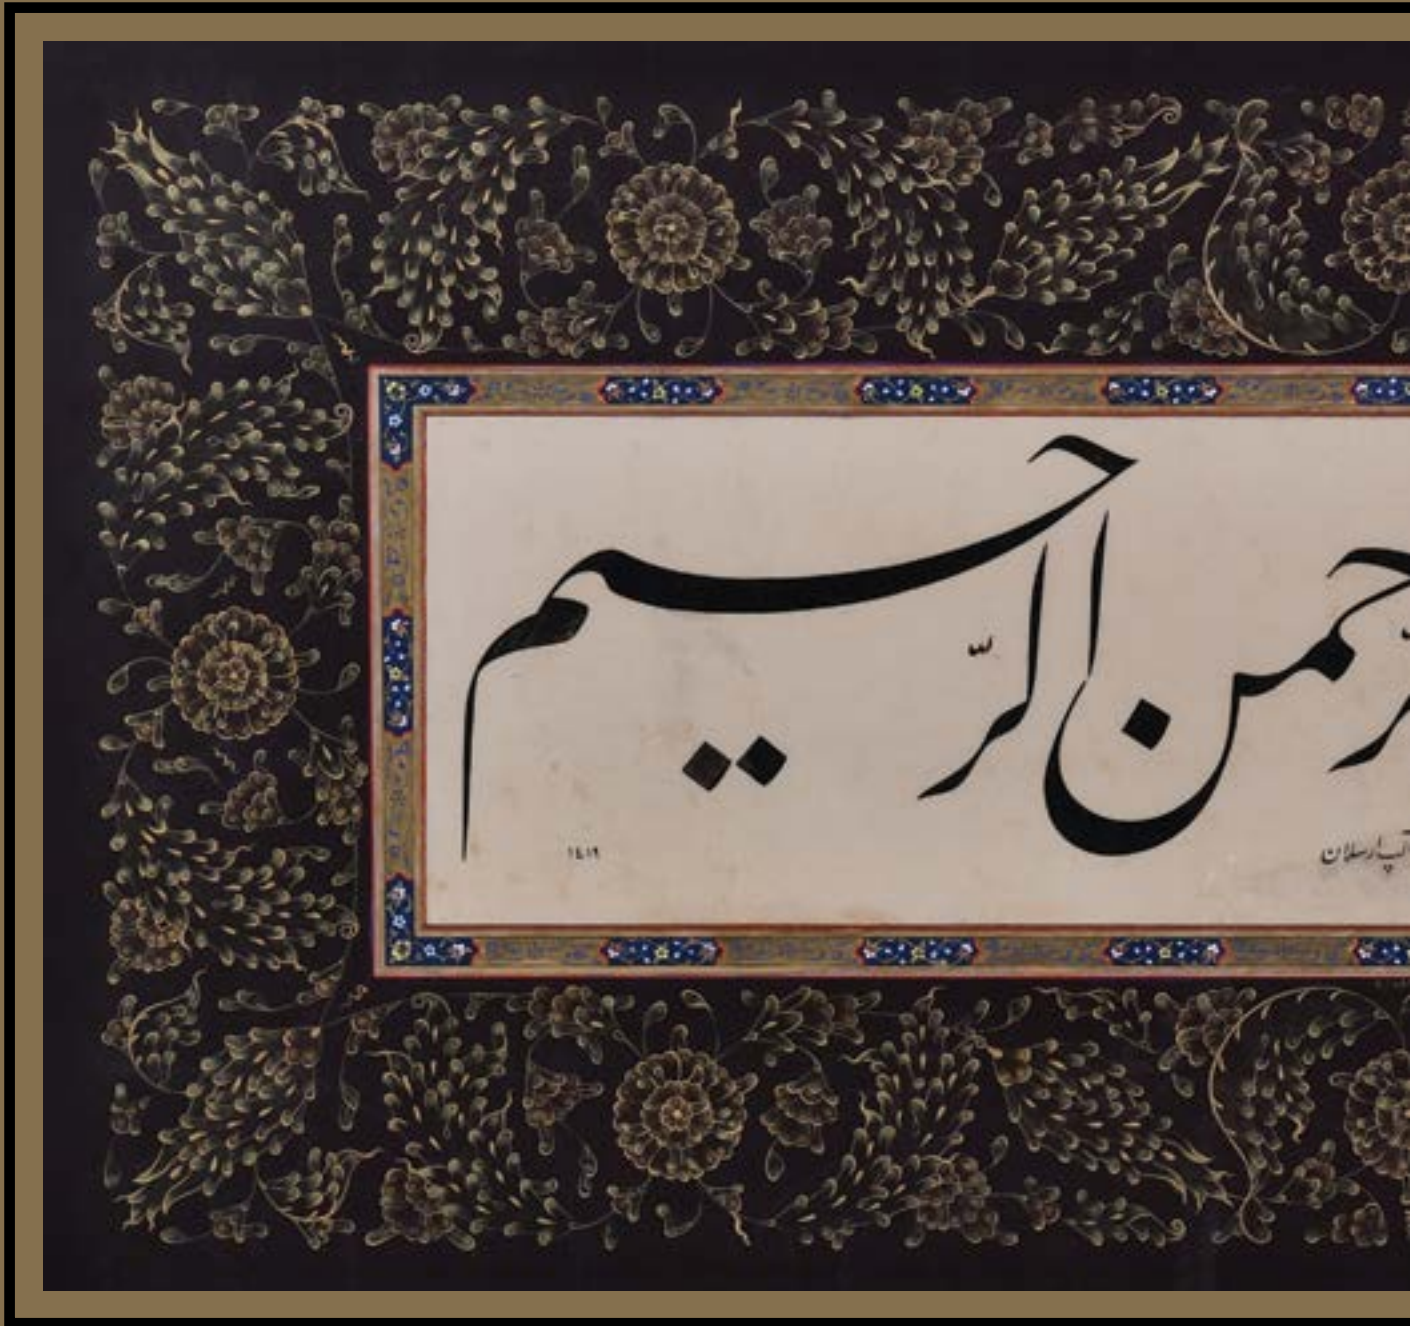 رّحمن الرّحيم
ارسلان ١٤١٩